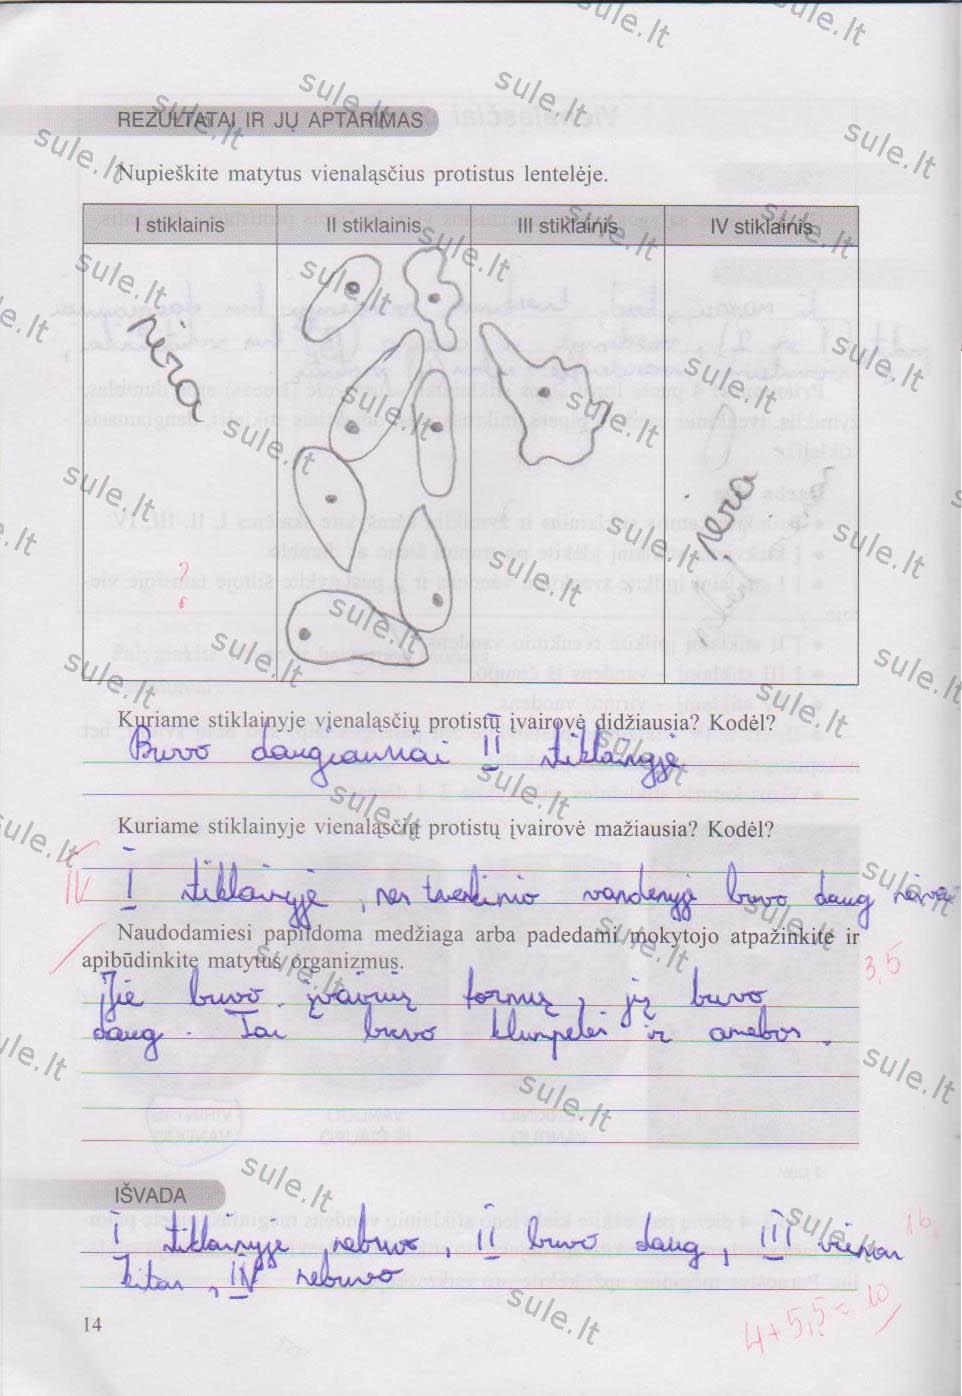 REZULTATAI IR JŲ APTARIMAS
Nupieškite matytus vienaląsčius protistus lentelėje.
I stiklainis II stiklainis III stiklainis IV stiklainis
nėra
nėra
?
Kuriame stiklainyje vienaląsčių protistų įvairovė didžiausia? Kodėl?
Buvo daugiausiai II stiklainyje
Kuriame stiklainyje vienaląsčių protistų įvairovė mažiausia? Kodėl?
IV
I stiklainyje, nes tvenkinio vandenyje buvo daug
Naudodamiesi papildoma medžiaga arba padedami mokytojo atpažinkite ir
apibūdinkite matytus organizmus.
3,5
Jie buvo įvairių formų, jų buvo
daug. Tai buvo klumpelės ir amebos.
IŠVADA
I stiklainyje nebuvo, II buvo daug, III vienas
kitas, IV nebuvo
1b.
14
4+5,5=10
sule.lt